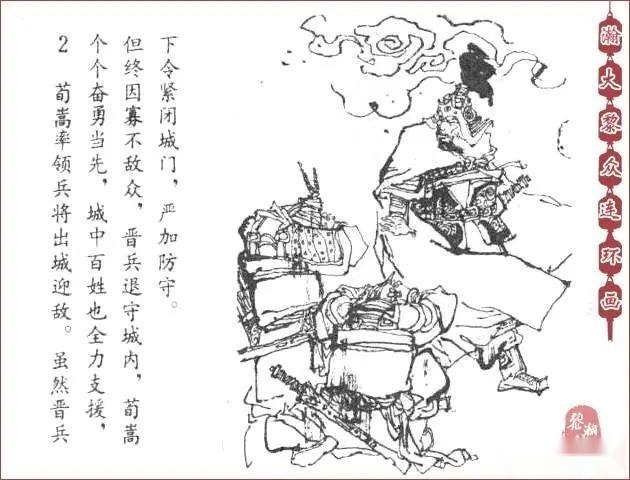 2 荀嵩率领兵将出城迎敌。虽然晋兵
个个奋勇当先，城中百姓也全力支援，
但终因寡不敌众，晋兵退守城内，荀嵩
下令紧闭城门，严加防守。
瀚大黎众连环画